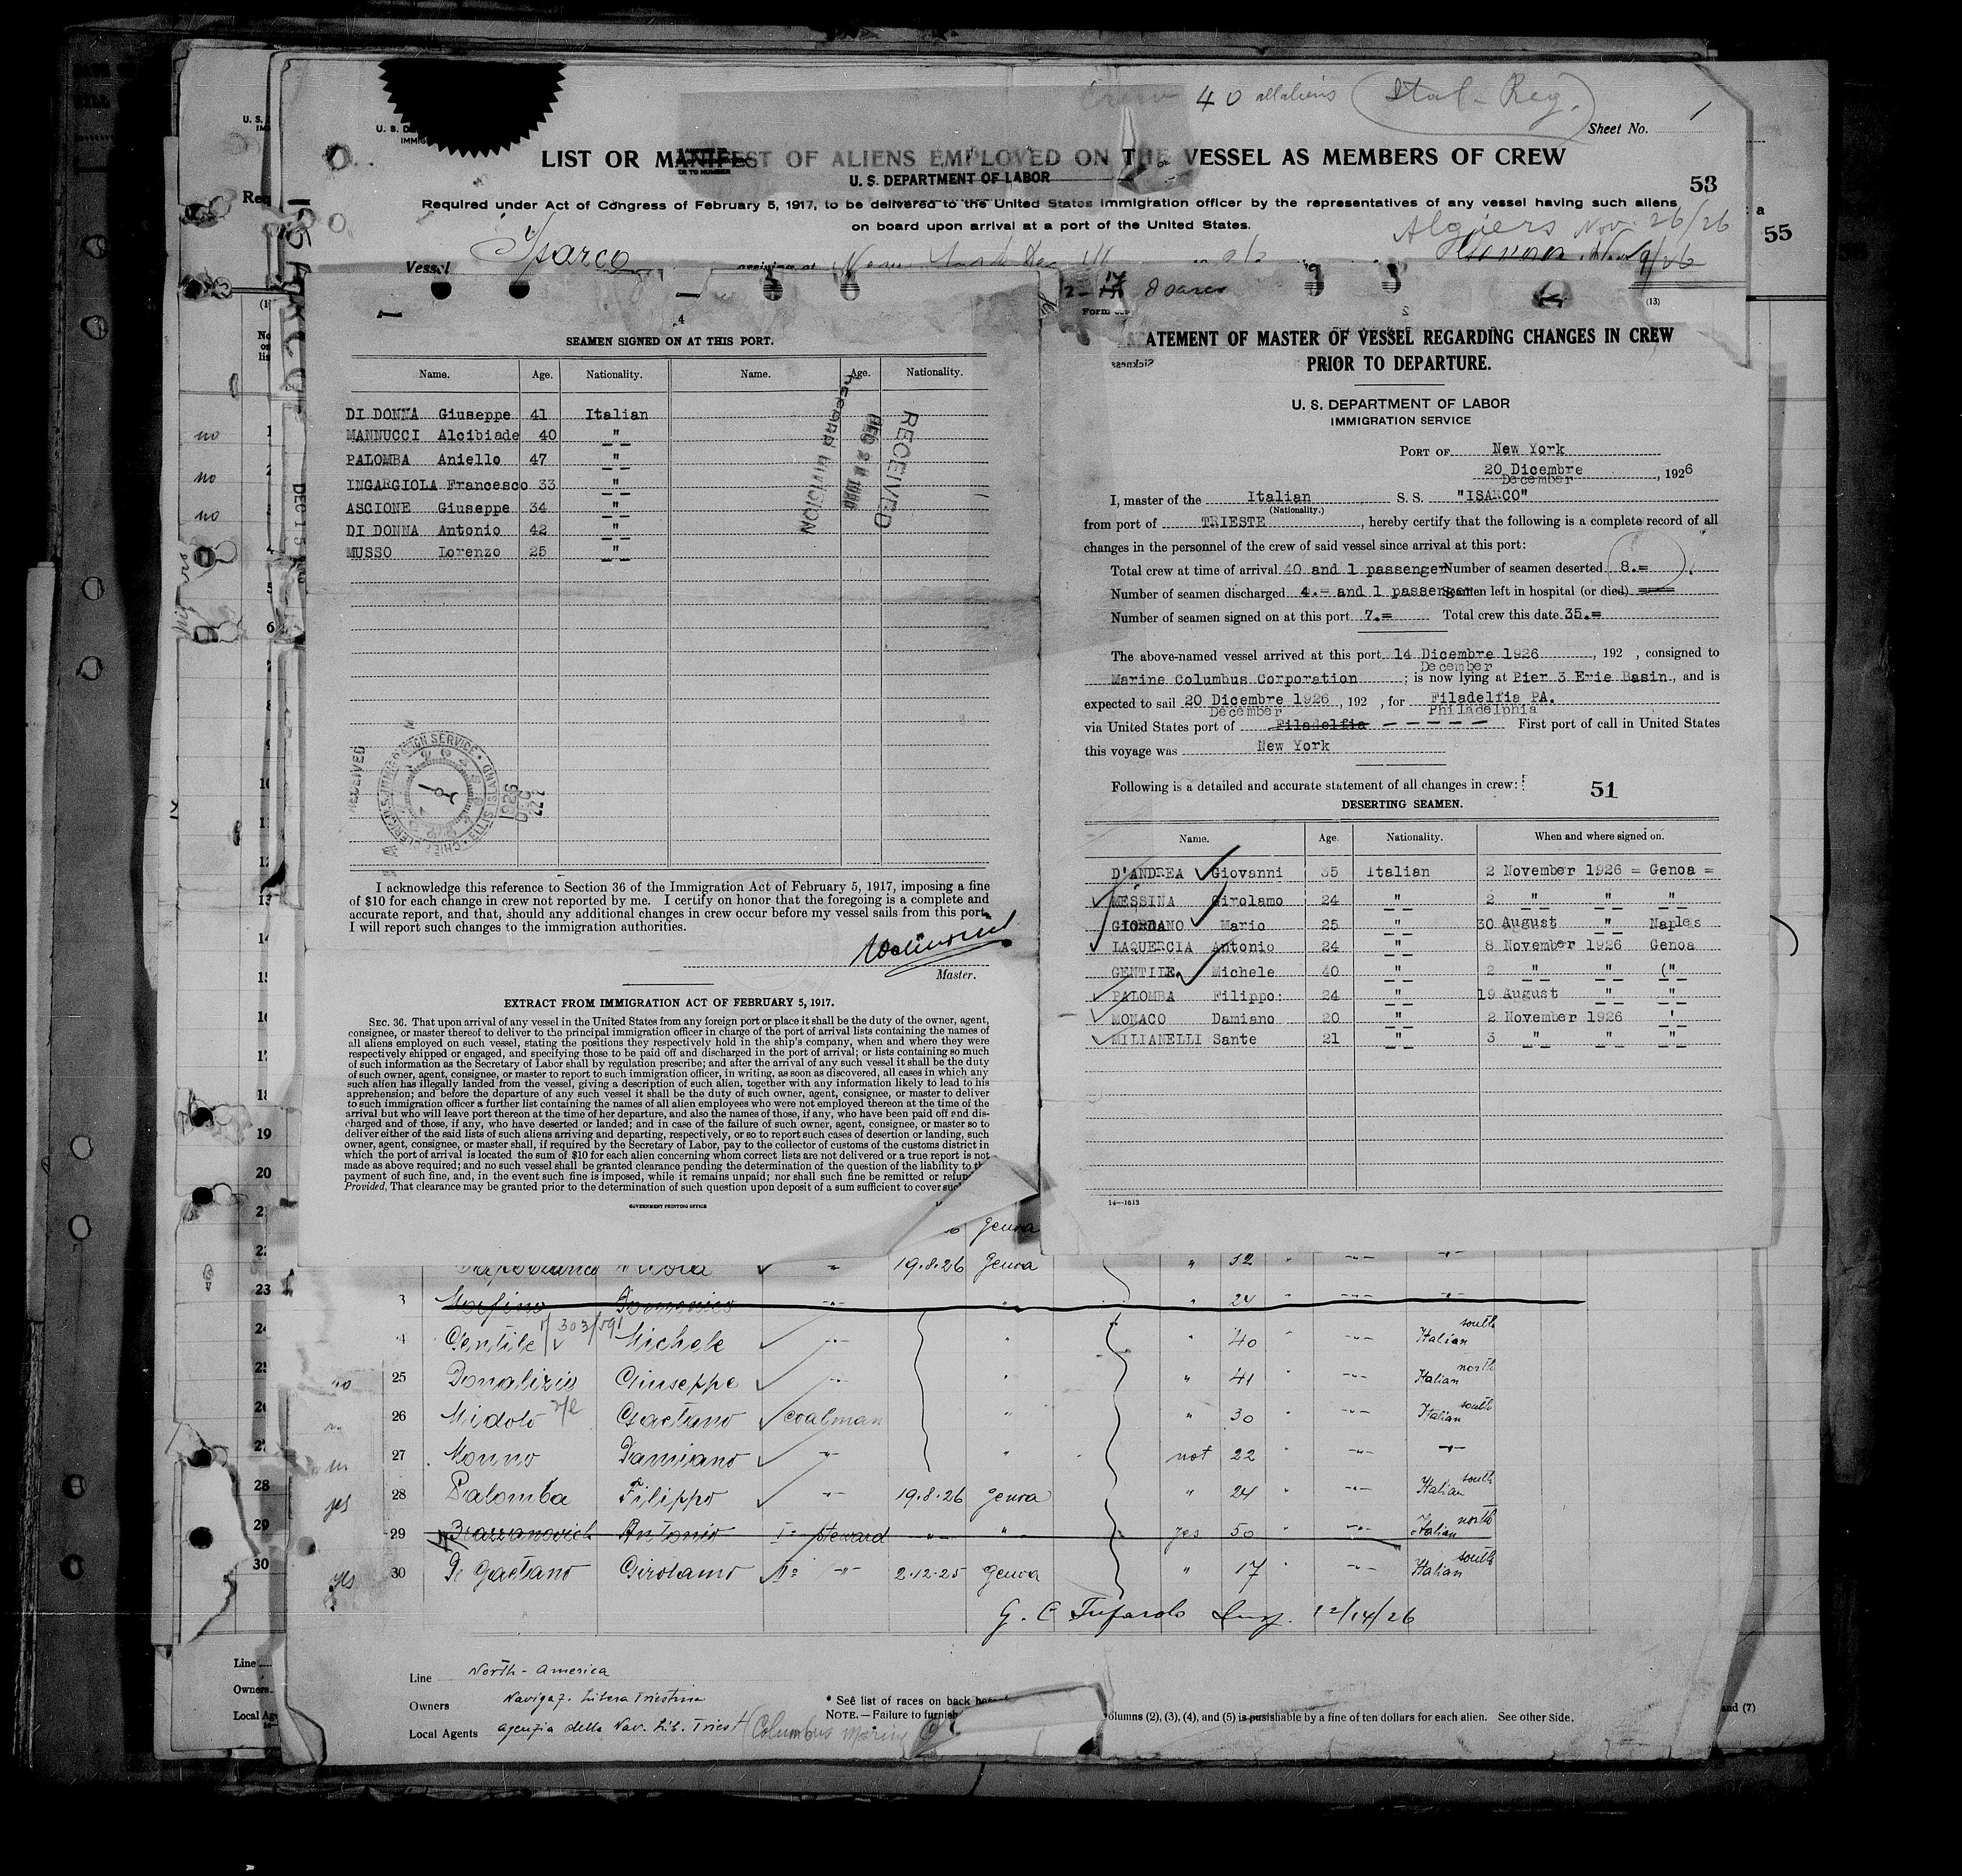 40 all aliens Ital-Reg.
Sheet No. 1
LIST OR MANIFEST OF ALIENS EMPLOYED ON THE VESSEL AS MEMBERS OF CREW
U. S. DEPARTMENT OF LABOR
53
Required under Act of Congress of February 5, 1917, to be delivered to the United States immigration officer by the representatives of any vessel having such aliens
on board upon arrival at a port of the United States.
Algiers Nov. 26/26
55
Vessel Isarco arriving at New York Dec 14
4
SEAMEN SIGNED ON AT THIS PORT.
Name. Age. Nationality. Name. Age. Nationality.
DI DONNA Giuseppe 41 Italian
MANNUCCI Alcibiade 40 "
PALOMBA Aniello 47 "
INGARGIOLA Francesco 33 "
ASCIONE Giuseppe 34 "
DI DONNA Antonio 42 "
MUSSO Lorenzo 25 "
RECEIVED
RECORD DIVISION
RECEIVED
1926 DEC 22
I acknowledge this reference to Section 36 of the Immigration Act of February 5, 1917, imposing a fine
of $10 for each change in crew not reported by me. I certify on honor that the foregoing is a complete and
accurate report, and that, should any additional changes in crew occur before my vessel sails from this port,
I will report such changes to the immigration authorities.
Master.
EXTRACT FROM IMMIGRATION ACT OF FEBRUARY 5, 1917.
SEC. 36. That upon arrival of any vessel in the United States from any foreign port or place it shall be the duty of the owner, agent,
consignee, or master thereof to deliver to the principal immigration officer in charge of the port of arrival lists containing the names of
all aliens employed on such vessel, stating the positions they respectively hold in the ship's company, when and where they were
respectively shipped or engaged, and specifying those to be paid off and discharged in the port of arrival; or lists containing so much
of such information as the Secretary of Labor shall by regulation prescribe; and after the arrival of any such vessel it shall be the duty
of such owner, agent, consignee, or master to report to such immigration officer, in writing, as soon as discovered, all cases in which any
such alien has illegally landed from the vessel, giving a description of such alien, together with any information likely to lead to his
apprehension; and before the departure of any such vessel it shall be the duty of such owner, agent, consignee, or master to deliver
to such immigration officer a further list containing the names of all alien employees who were not employed thereon at the time of the
arrival but who will leave port thereon at the time of her departure, and also the names of those, if any, who have been paid off and dis-
charged and of those, if any, who have deserted or landed; and in case of the failure of such owner, agent, consignee, or master so to
deliver either of the said lists of such aliens arriving and departing, respectively, or so to report such cases of desertion or landing, such
owner, agent, consignee, or master shall, if required by the Secretary of Labor, pay to the collector of customs of the customs district in
which the port of arrival is located the sum of $10 for each alien concerning whom correct lists are not delivered or a true report is not
made as above required; and no such vessel shall be granted clearance pending the determination of the question of the liability to the
payment of such fine, and, in the event such fine is imposed, while it remains unpaid; nor shall such fine be remitted or refun
Provided, That clearance may be granted prior to the determination of such question upon deposit of a sum sufficient to cover suc
GOVERNMENT PRINTING OFFICE
Form
(13)
ATEMENT OF MASTER OF VESSEL REGARDING CHANGES IN CREW
PRIOR TO DEPARTURE.
U. S. DEPARTMENT OF LABOR
IMMIGRATION SERVICE
PORT OF New York
20 Dicembre , 1926
December
I, master of the Italian S. S. "ISARCO"
(Nationality.)
from port of TRIESTE , hereby certify that the following is a complete record of all
changes in the personnel of the crew of said vessel since arrival at this port:
Total crew at time of arrival 40 and 1 passenger Number of seamen deserted 8.=
Number of seamen discharged 4.= and 1 passenger Seamen left in hospital (or died) =
Number of seamen signed on at this port 7.= Total crew this date 35.=
The above-named vessel arrived at this port 14 Dicembre 1926 , 192 , consigned to
December
Marine Columbus Corporation ; is now lying at Pier 3 Erie Basin , and is
expected to sail 20 Dicembre 1926 , 192 , for Filadelfia PA.
December Philadelphia
via United States port of Filadelfia First port of call in United States
this voyage was New York
Following is a detailed and accurate statement of all changes in crew:
51
DESERTING SEAMEN.
Name. Age. Nationality. When and where signed on.
D'ANDREA Giovanni 35 Italian 2 November 1926 = Genoa =
MESSINA Girolamo 24 " 2 " " "
GIORDANO Mario 25 " 30 August " Naples
LAQUERCIA Antonio 24 " 8 November 1926 Genoa
GENTILE Michele 40 " 2 " " ("
PALOMBA Filippo: 24 " 19 August " "
MONACO Damiano 20 " 2 November 1926 '
MILIANELLI Sante 21 " 3 " " "
14—1613
Genoa
19.8.26 Genoa " 32
24
Gentile Michele " 40 south Italian
25 Donalizio Giuseppe " 41 north Italian
26 Midolo Gaetano coalman " 30 south Italian
27 Monno Damiano not 22
28 Palomba Filippo 19.8.26 Genoa " 24 south Italian
29 Antonio I° steward yes 50 north Italian
30 De Gaetano Girolamo II° 2.12.25 Genoa " 17 south Italian
12/14/26
Line North-America
Owners Navigaz. Libera Triestina
Local Agents Agenzia della Nav. Lib. Triest (Columbus Marine
* See list of races on back
NOTE.—Failure to furnish
olumns (2), (3), (4), and (5) is punishable by a fine of ten dollars for each alien. See other Side.
and (7)